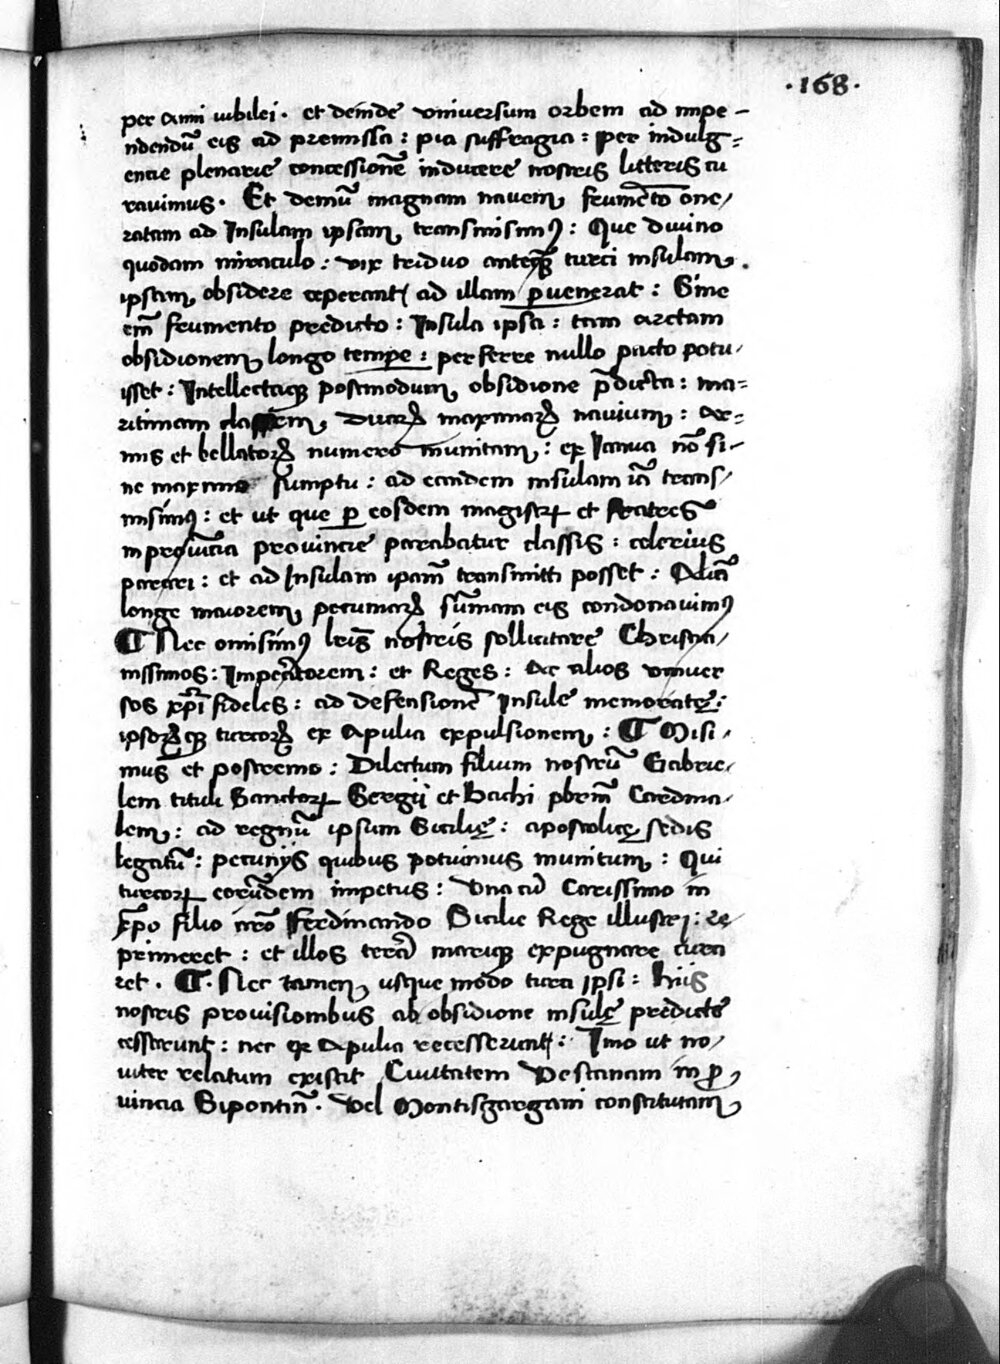 ·168·
per anni iubilei · et deinde vniuersum orbem ad impe-
ndendũ eis ad premissa : pia suffragia : per indulg=
entie plenarie concessionẽ inducere nostris litteris cu
rauimus · Et demũ magnam nauem frumẽto one/
ratam ad Insulam ipsam transmisimꝰ : Que diuino
quodam miraculo : vix triduo anteqꝫ turci insulam
ipsam obsidere ceperant ad illam ꝑuenerat : Sine
em̃ frumento predicto : Insula ipsa : tam arctam
obsidionem longo tempe : perferre nullo pacto potu/
isset : Intellectaqꝫ postmodum obsidione p̃dicta : ma=
ritimam classem duarꝝ maximarꝝ nauium : ar=
mis et bellatorꝝ numero munitam : ex Ianua nõ si-
ne maximo sumptu : ad eandem insulam iã trans/
misimꝰ : et ut que ꝑ eosdem magistrꝫ et fratres
in prouĩcia prouincie parabatur classis : celerius
parari : et ad Insulam ipam̃ transmitti posset : Aliã
longe maiorem pecuniarꝝ sũmam eis condonauimꝰ
¶ Nec omisimꝰ lris̃ nostris sollicitare Christia/
nissimos : Imperãtorem : et Reges : ac alios vniuer
sos xp̃i fideles : ad defensionẽ Insule memoratę :
ipsorꝝqꝫ turcorꝝ ex Apulia expulsionem : ¶ Misi/
mus et postremo : Dilectum filium nostrũ Gabrie/
lem tituli Sanctorꝝ Sergij et Bachi pbrm̃ Cardina/
lem : ad regnũ ipsum Sicilię : apostolicę sedis
legatũ : pecunijs quibus potuimus munitum : Qui
turcorꝝ eorũdem impetus : Vna cũ Carissimo in
xp̃o filio nrõ Ferdinando Sicilie Rege illustri : re/
primeret : et illos terrã mariqꝫ expugnare cura
ret · ¶ · Nec tamen usque modo turci ipsi : hiis
nostris prouisionibus ab obsidione insulę predicte
cesserunt : nec ex Apulia recesserunt : Imo ut no/
uiter relatum existit Ciuitatem Vestanam in ꝓ
uincia Sipontiñ · Vel Montisgargani constitutam